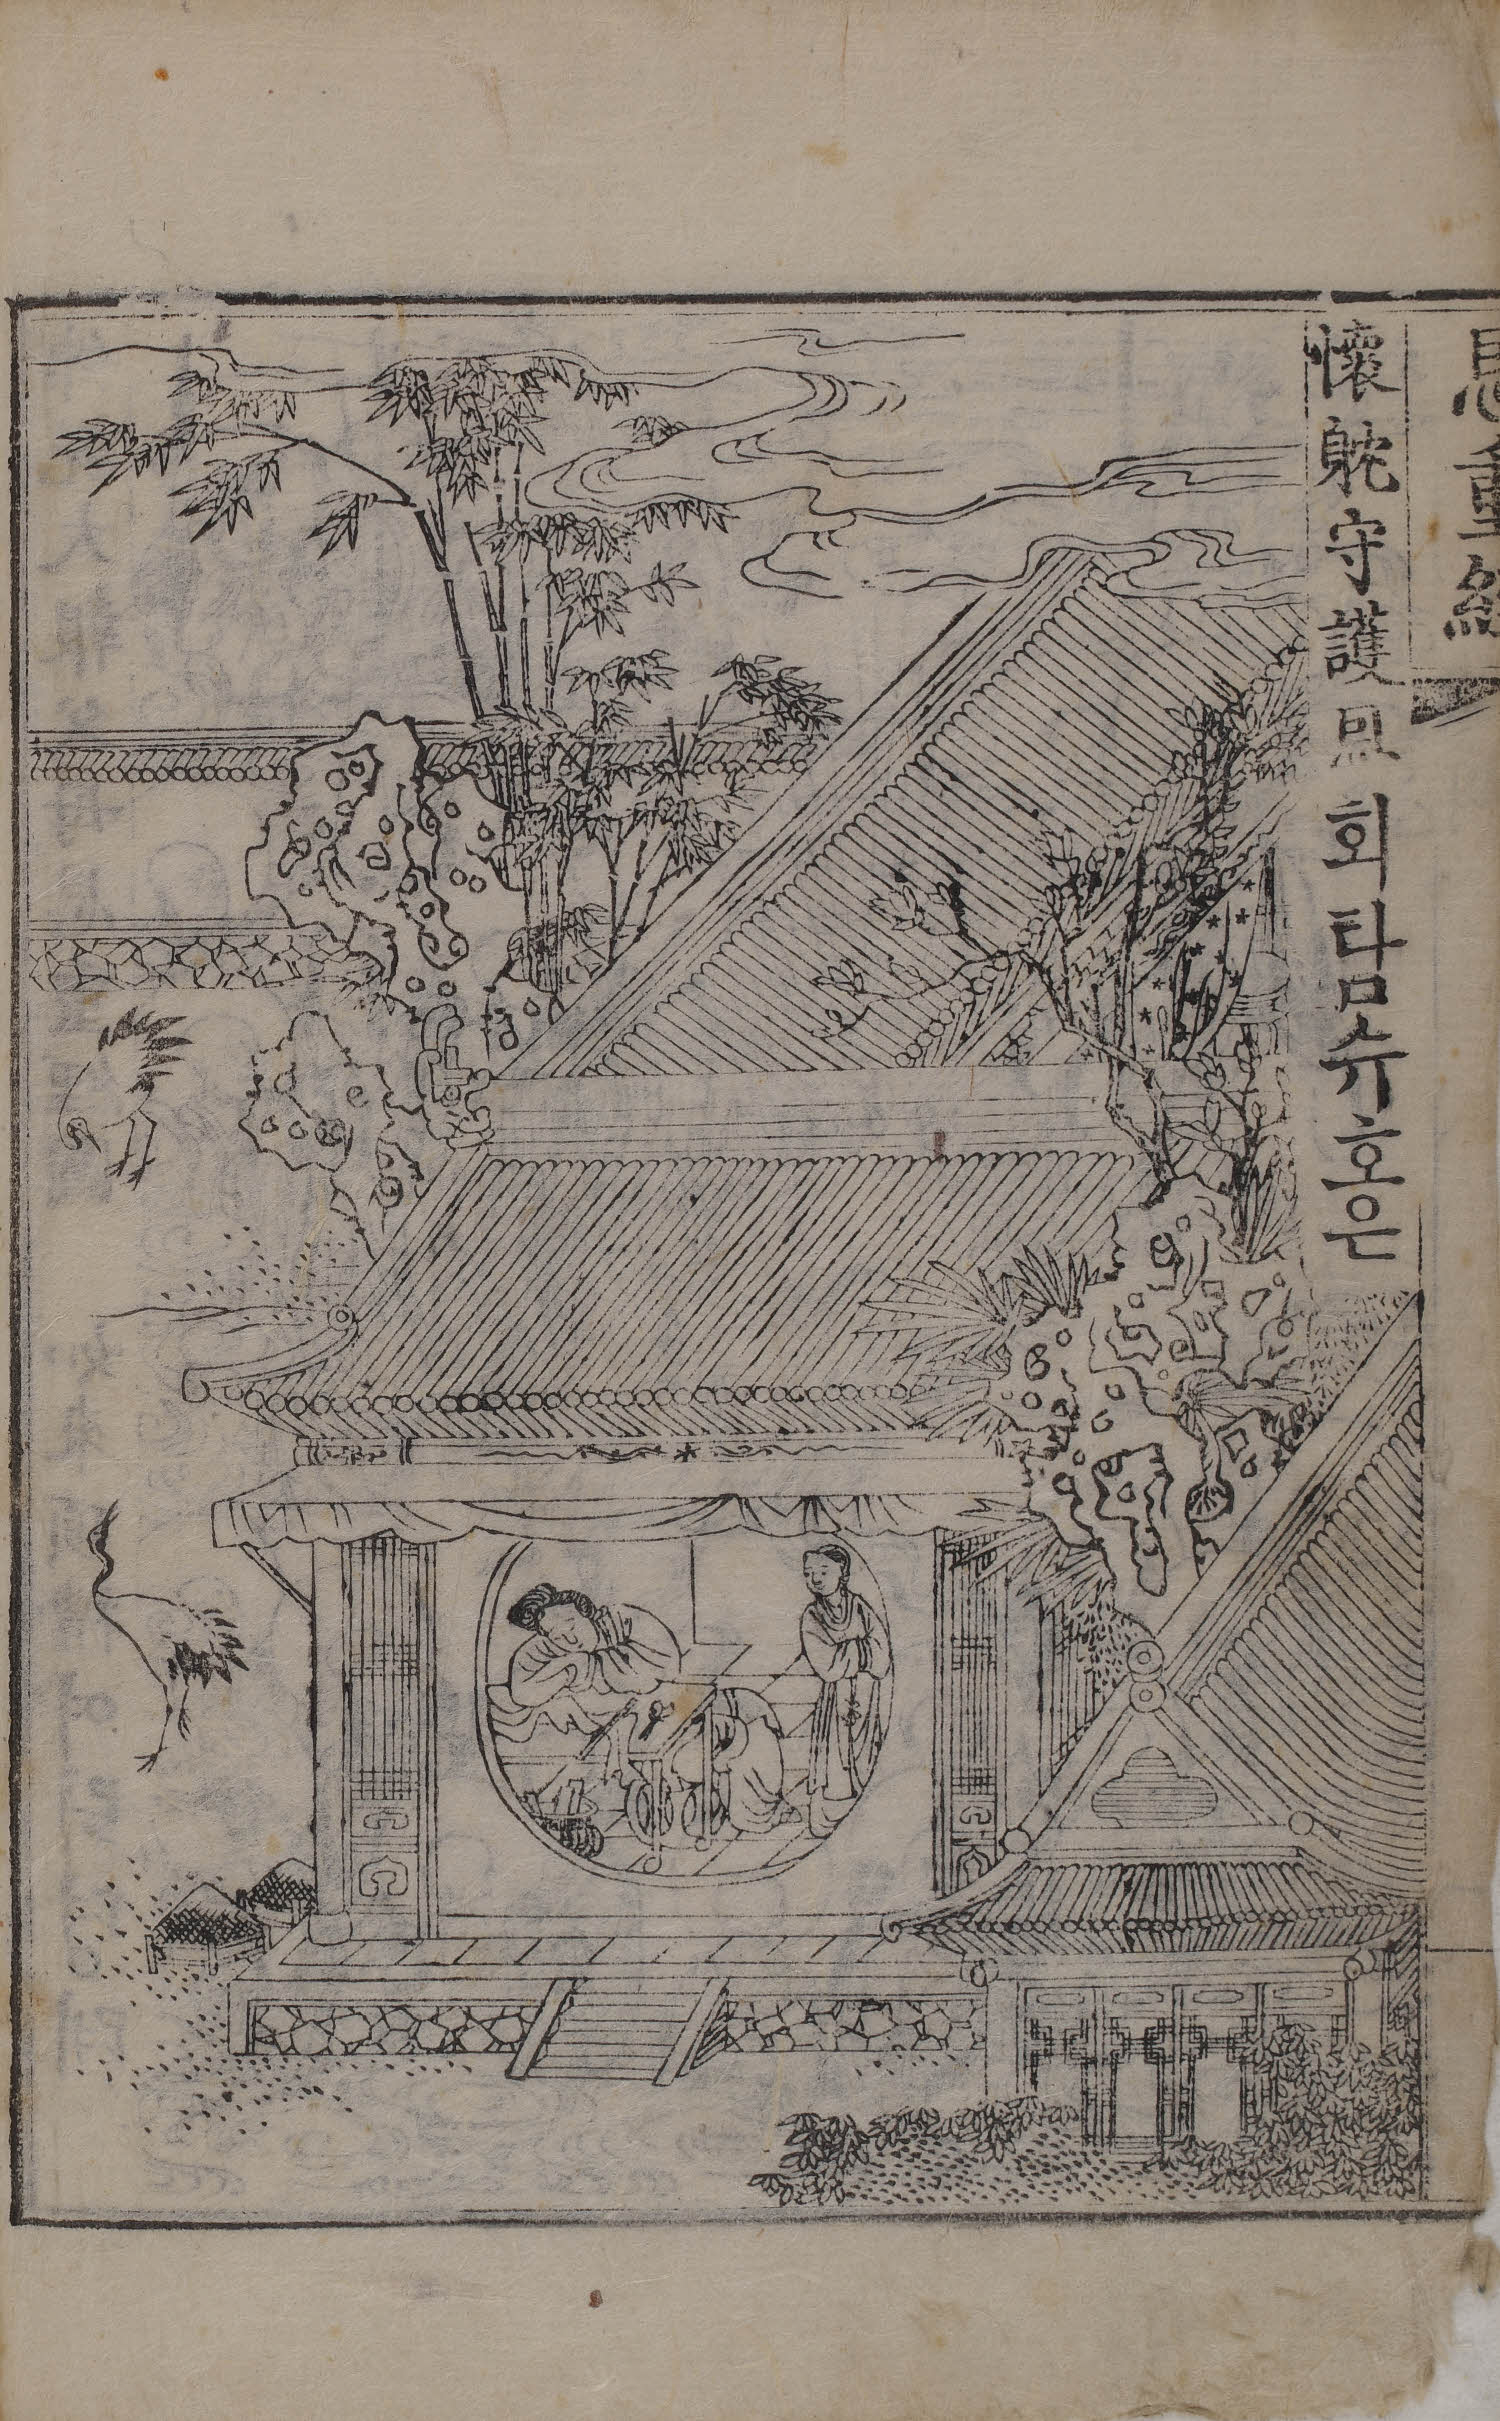 恩重經
懷躭守護恩 회탐슈호은